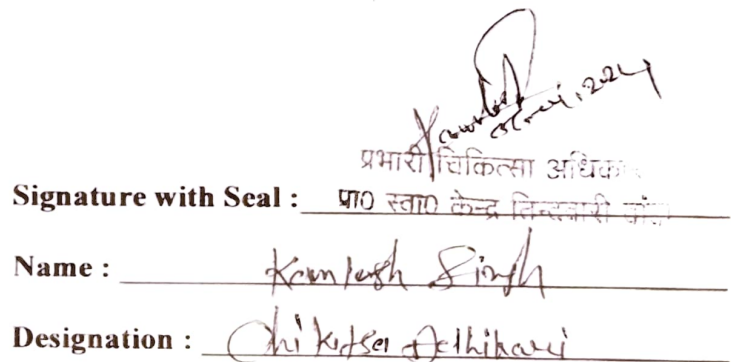 प्रभारी चिकित्सा
Signature with Seal : प्रा० स्वा० केन्द्र तिन्दवारी
Name : Kamlesh Singh
Designation : Chikitsa Adhikari